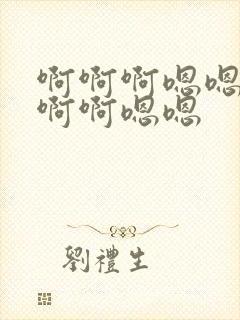 啊啊啊嗯嗯
啊啊嗯嗯
劉禮生